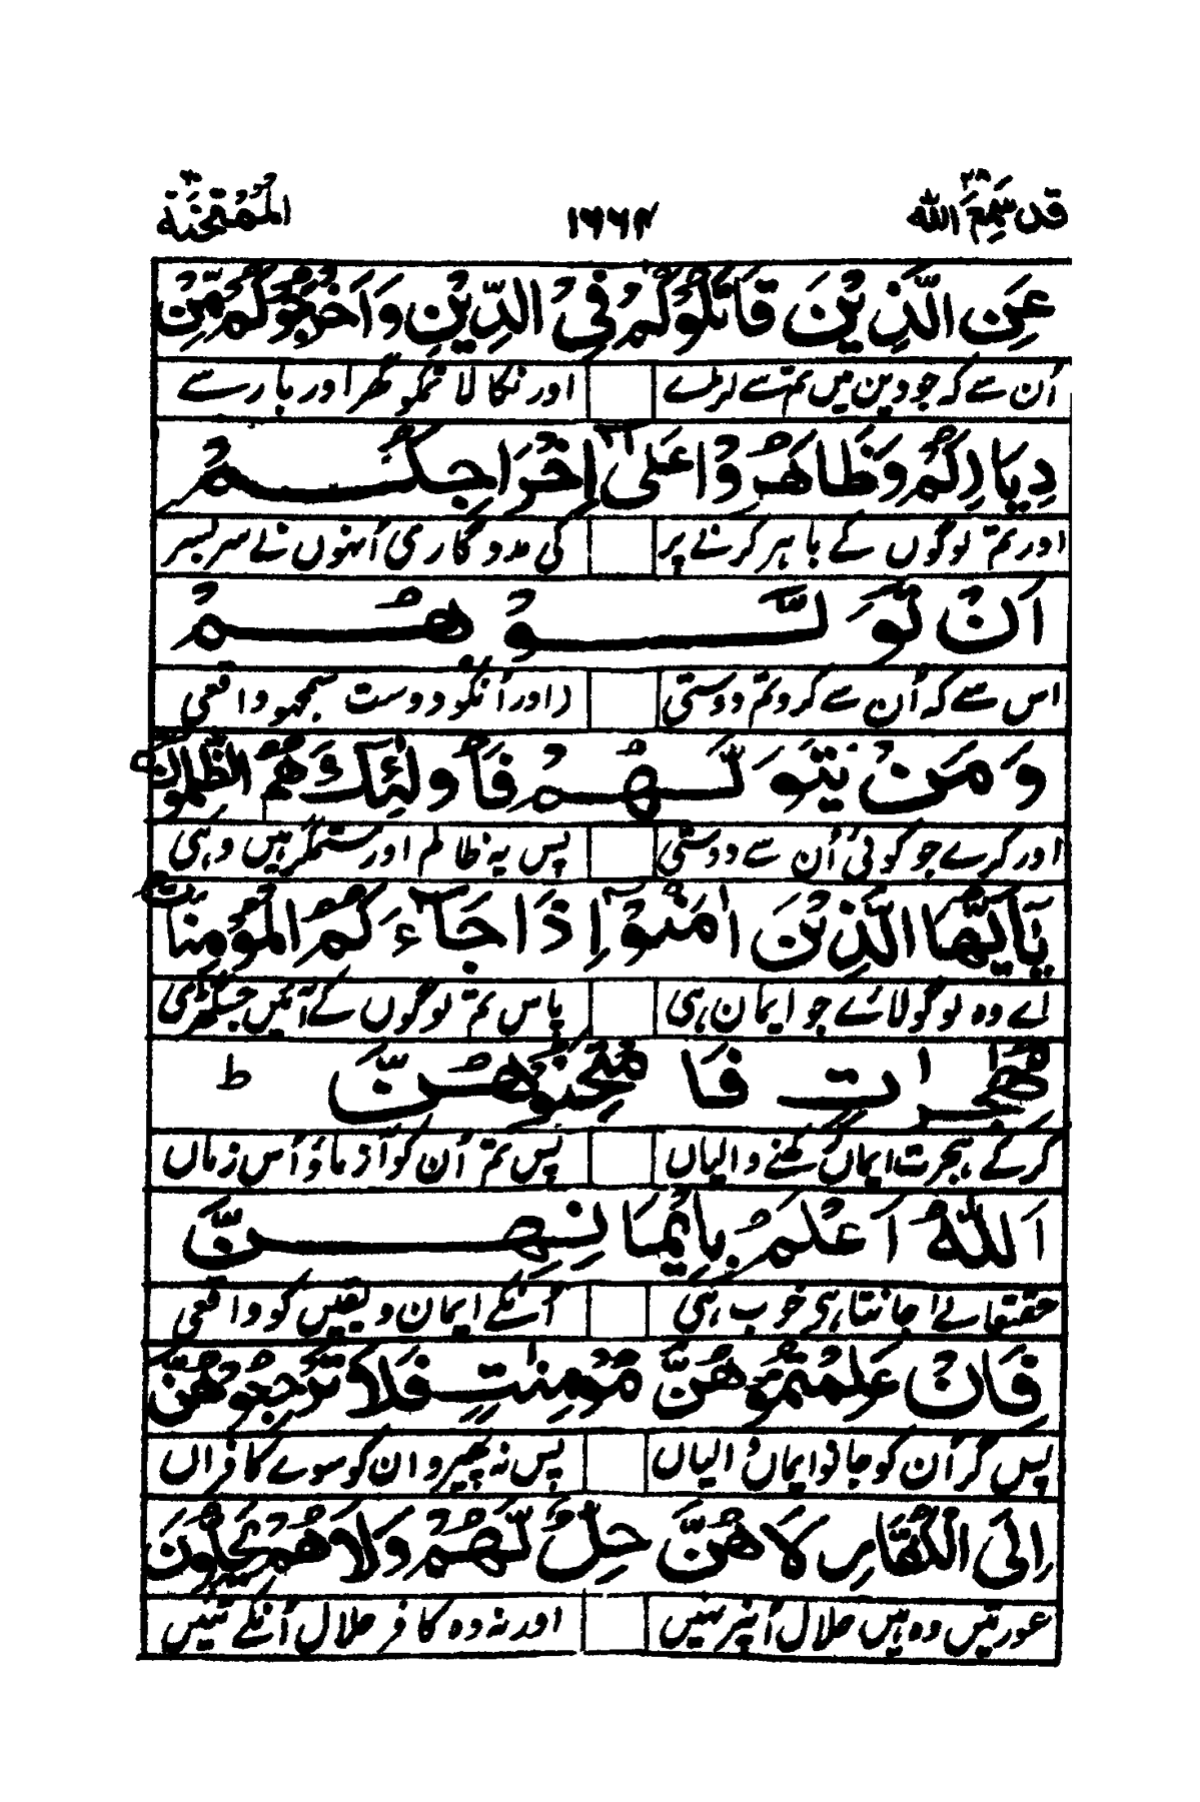 قد سمع الله ۲۸ ۱۶۶۴ الممتحنة ۶۰
عَنِ الَّذِيْنَ قَاتَلُوْكُمْ فِي الدِّيْنِ وَاَخْرَجُوْكُمْ مِّنْ
اُن سے کہ جو دین میں تم سے لڑے اور نکالا تمکو گھر اور بار سے
دِيَارِكُمْ وَظَاهَرُوْا عَلٰٓى اِخْرَاجِكُمْ
اور تم لوگوں کے باہر کرنے پر کی مددگاری اُنہوں نے سر بسر
اَنْ تَوَلَّوْهُمْ
اس سے کہ اُن سے کرو تم دوستی (اور اُنکو دوست سمجھو واقعی
وَمَنْ يَّتَوَلَّهُمْ فَاُولٰٓئِكَ هُمُ الظّٰلِمُوْنَ
اور کرے جو کوئی اُن سے دوستی پس یہ ظالم اور ستمگر ہیں وہی
يٰٓاَيُّهَا الَّذِيْنَ اٰمَنُوْٓا اِذَا جَآءَكُمُ الْمُؤْمِنٰتُ
اے وہ لوگو لائے جو ایمان ہی پاس تم لوگوں کے آئیں جس گھڑی
مُهٰجِرٰتٍ فَامْتَحِنُوْهُنَّ ط
کر کے ہجرت ایماں والیاں پس تم اُن کو آزماؤ اُس زماں
اَللّٰهُ اَعْلَمُ بِاِيْمَانِهِنَّ
حقتعالے جانتا ہی خوب ہی اُنکے ایمان و یقیں کو واقعی
فَاِنْ عَلِمْتُمُوْهُنَّ مُؤْمِنٰتٍ فَلَا تَرْجِعُوْهُنَّ
پس گر اُن کو جانو ایماں والیاں پس نہ پھیرو ان کو سوے کافراں
اِلَى الْكُفَّارِ لَا هُنَّ حِلٌّ لَّهُمْ وَلَا هُمْ يَحِلُّوْنَ
عورتیں وہ ہیں حلال اُنپر نہیں اور نہ وہ کافر حلال اُنکے تئیں